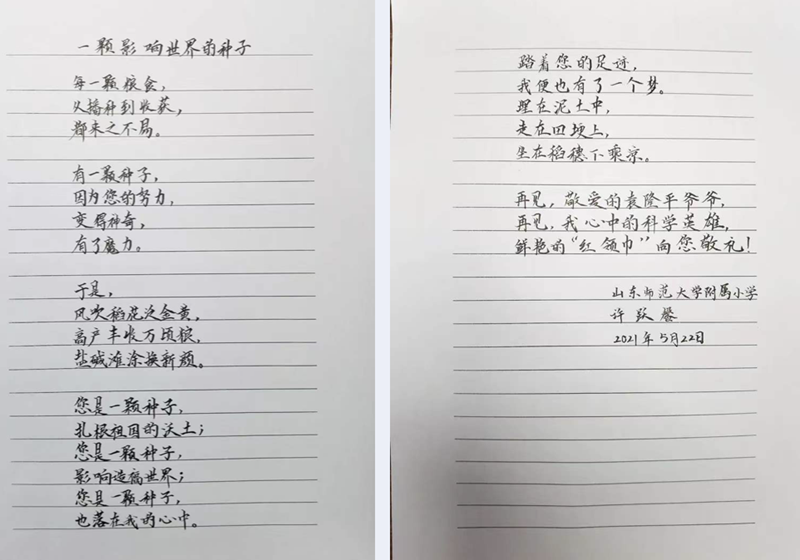 一颗影响世界的种子
每一颗粮食，
从播种到收获，
都来之不易。
有一颗种子，
因为您的努力，
变得神奇，
有了魔力。
于是，
风吹稻花泛金黄，
高产丰收万顷粮，
盐碱滩涂换新颜。
您是一颗种子，
扎根祖国的沃土；
您是一颗种子，
影响造福世界；
您是一颗种子，
也落在我的心中。
踏着您的足迹，
我便也有了一个梦。
埋在泥土中，
走在田埂上，
坐在稻穗下乘凉。
再见，敬爱的袁隆平爷爷，
再见，我心中的科学英雄，
鲜艳的“红领巾”向您敬礼！
山东师范大学附属小学
许跃馨
2021年5月22日